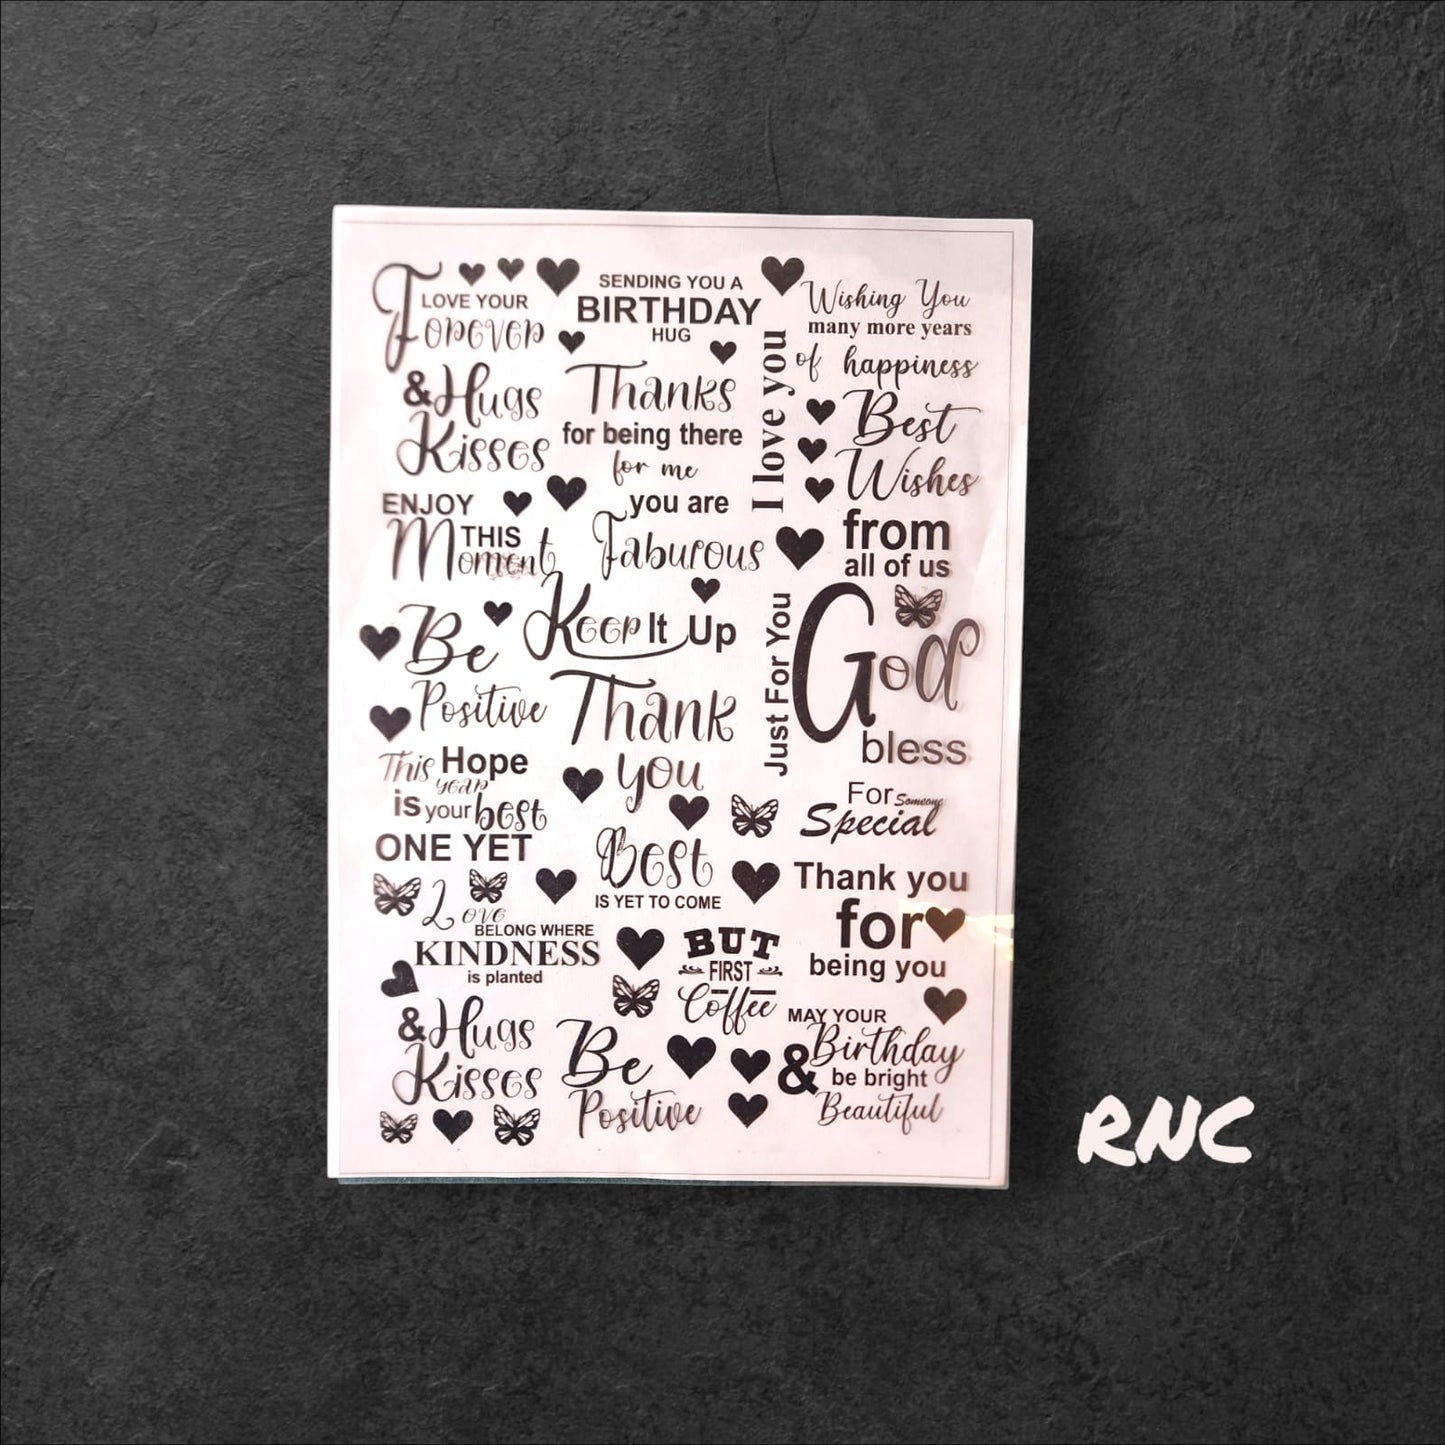 I LOVE YOUR
Forever
& Hugs
Kisses
ENJOY
THIS
Moment
Be
Positive
This Hope
year
is your best
ONE YET
Love
BELONG WHERE
KINDNESS
is planted
& Hugs
Kisses
SENDING YOU A
BIRTHDAY
HUG
Thanks
for being there
for me
you are
Faburous
Keep It Up
Thank
you
Best
IS YET TO COME
BUT
FIRST
Coffee
Be
Positive
I love you
Just For You
Wishing You
many more years
of happiness
Best
Wishes
from
all of us
God
bless
For Someone
Special
Thank you
for
being you
MAY YOUR
Birthday
& be bright
Beautiful
RNC